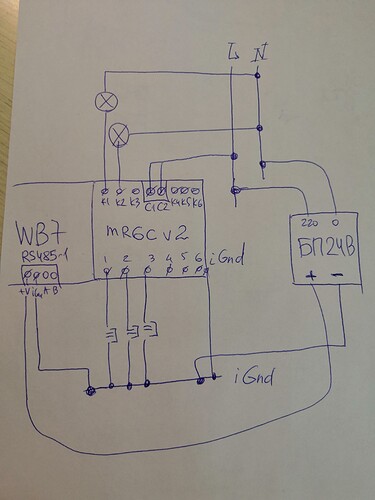 L N
K1 K2 K3 C1 C2 K4 K5 K6
220 0
WB7
MR6C v2
БП24В
RS485-1
1 2 3 4 5 6 iGnd
+ -
+V iGnd A B
iGnd